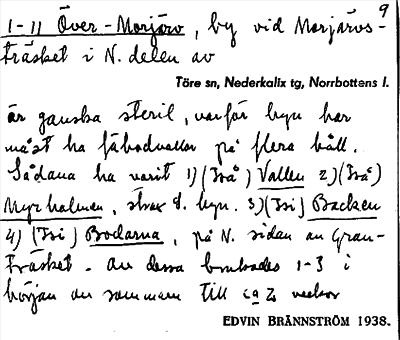 9
1-11 Över-Morjärv, by vid Morjärvs-
träsket i N. delen av
Töre sn, Nederkalix tg, Norrbottens l.
är ganska steril, varför byn har
måst ha fäbodvallar på flera håll.
Sådana ha varit 1) (två) Vallen 2) (två)
Myrholmen, strax S. byn. 3) (tsi) Backen
4) (tsi) Bodarna, på N. sidan av Gran-
träsket. Av dessa brukades 1-3 i
början av sommaren till ca 2 veckor
EDVIN BRÄNNSTRÖM 1938.